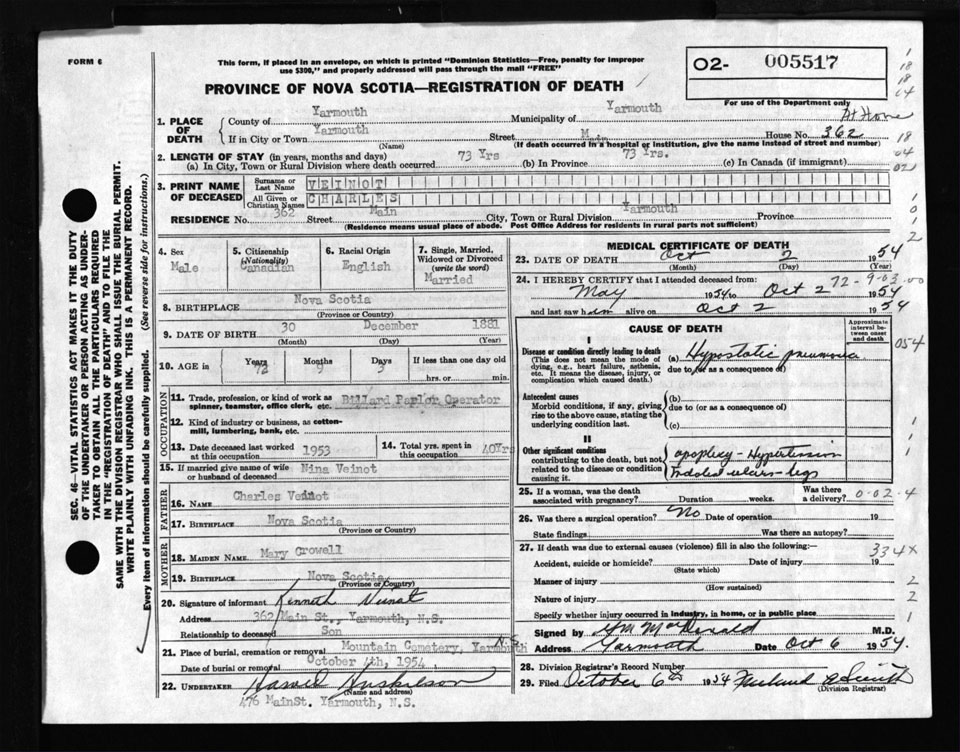 FORM 6
This form, if placed in an envelope, on which is printed "Dominion Statistics—Free, penalty for improper
use $300," and properly addressed will pass through the mail "FREE"
O2- 005517
For use of the Department only
PROVINCE OF NOVA SCOTIA—REGISTRATION OF DEATH
1. PLACE OF DEATH
County of Yarmouth Municipality of Yarmouth
At Home
If in City or Town Yarmouth Street Main House No. 362
(Name) (If death occurred in a hospital or institution, give the name instead of street and number)
2. LENGTH OF STAY (in years, months and days)
(a) In City, Town or Rural Division where death occurred 73 Yrs (b) In Province 73 Yrs. (c) In Canada (if immigrant)
3. PRINT NAME OF DECEASED
Surname or Last Name VEINOT
All Given or Christian Names CHARLES
RESIDENCE No. 362 Street Main City, Town or Rural Division Yarmouth Province
(Residence means usual place of abode. Post Office Address for residents in rural parts not sufficient)
4. Sex Male
5. Citizenship (Nationality) Canadian
6. Racial Origin English
7. Single, Married, Widowed or Divorced (write the word) Married
8. BIRTHPLACE Nova Scotia
(Province or Country)
9. DATE OF BIRTH 30 December 1881
(Month) (Day) (Year)
10. AGE in Years 72 Months 9 Days 3 If less than one day old
hrs. or min.
OCCUPATION
11. Trade, profession, or kind of work as spinner, teamster, office clerk, etc. Billard Parlor Operator
12. Kind of industry or business, as cotton-mill, lumbering, bank, etc.
13. Date deceased last worked at this occupation 1953
14. Total yrs. spent in this occupation 40Yrs
15. If married give name of wife or husband of deceased Nina Veinot
FATHER
16. NAME Charles Veinot
17. BIRTHPLACE Nova Scotia
(Province or Country)
MOTHER
18. MAIDEN NAME Mary Crowell
19. BIRTHPLACE Nova Scotia
(Province or Country)
20. Signature of informant Kenneth Veinot
Address 362 Main St., Yarmouth, N.S.
Relationship to deceased Son
21. Place of burial, cremation or removal Mountain Cemetery, Yarmouth N.S.
Date of burial or removal October 4th, 1954
22. UNDERTAKER
(Name and address)
476 MainSt. Yarmouth, N.S.
MEDICAL CERTIFICATE OF DEATH
23. DATE OF DEATH Oct 2 1954
(Month) (Day) (Year)
24. I HEREBY CERTIFY that I attended deceased from: 72-9-03.00
May 1954 to Oct 2 1954
and last saw him alive on Oct 2 1954
CAUSE OF DEATH
Approximate interval between onset and death
054
I
Disease or condition directly leading to death
(This does not mean the mode of dying, e.g., heart failure, asthenia, etc. It means the disease, injury, or complication which caused death.
(a) Hypostatic pneumonia
due to (or as a consequence of)
Antecedent causes
Morbid conditions, if any, giving rise to the above cause, stating the underlying condition last.
(b)
due to (or as a consequence of)
(c)
II
Other significant conditions
contributing to the death, but not related to the disease or condition causing it.
apoplexy - Hypertension
Indolent ulcers - legs
25. If a woman, was the death associated with pregnancy? Duration weeks. Was there a delivery?
0-02-4
26. Was there a surgical operation? No Date of operation 19
State findings Was there an autopsy?
27. If death was due to external causes (violence) fill in also the following:—
334x
Accident, suicide or homicide? Date of injury 19
(State which)
Manner of injury
(How sustained)
Nature of injury
Specify whether injury occurred in industry, in home, or in public place
Signed by M.D.
Address Yarmouth Date Oct 6 1954
28. Division Registrar's Record Number
29. Filed October 6th 1954
(Division Registrar)
SEC. 46 — VITAL STATISTICS ACT MAKES IT THE DUTY
OF THE UNDERTAKER OR PERSON ACTING AS UNDER-
TAKER TO OBTAIN ALL THE PARTICULARS REQUIRED
IN THE "REGISTRATION OF DEATH" AND TO FILE THE
SAME WITH THE DIVISION REGISTRAR WHO SHALL ISSUE THE BURIAL PERMIT.
WRITE PLAINLY WITH UNFADING INK. THIS IS A PERMANENT RECORD.
Every item of information should be carefully supplied. (See reverse side for instructions.)